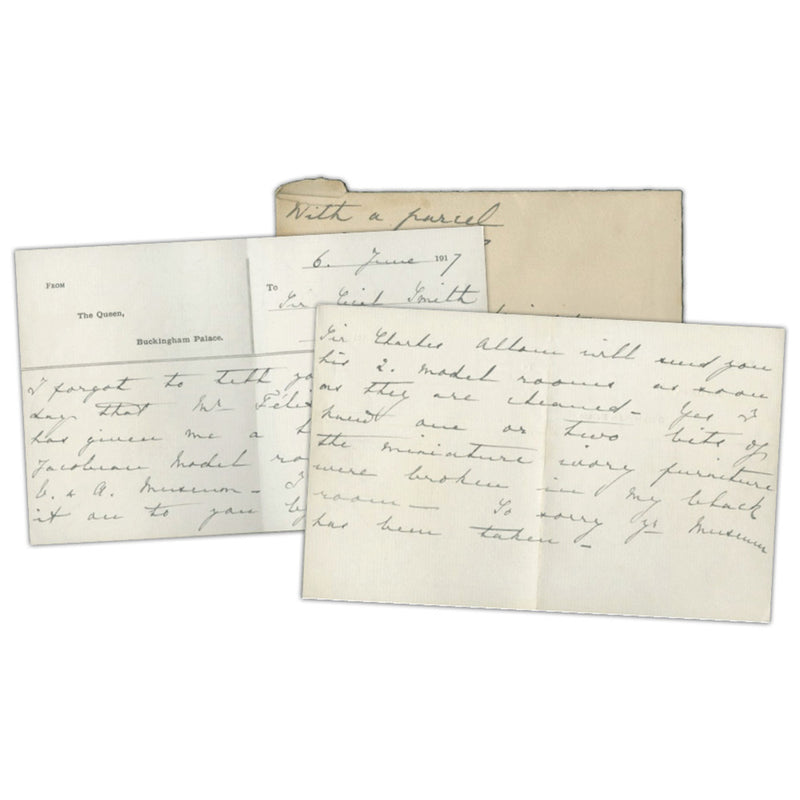 With a parcel
6. June 1917
FROM
To
The Queen,
Sir Cecil Smith
Buckingham Palace.
I forgot to tell yo
day that Mr Féli
has given me a
Jacobean Model ro
V. & A. Museum - I
it on to you by
Sir Charles Allom will send you
his 2. model rooms as soon
as they are cleaned - Yes I
knew one or two bits of
the miniature ivory furniture
were broken in my black
room - So sorry yr Museum
has been taken -